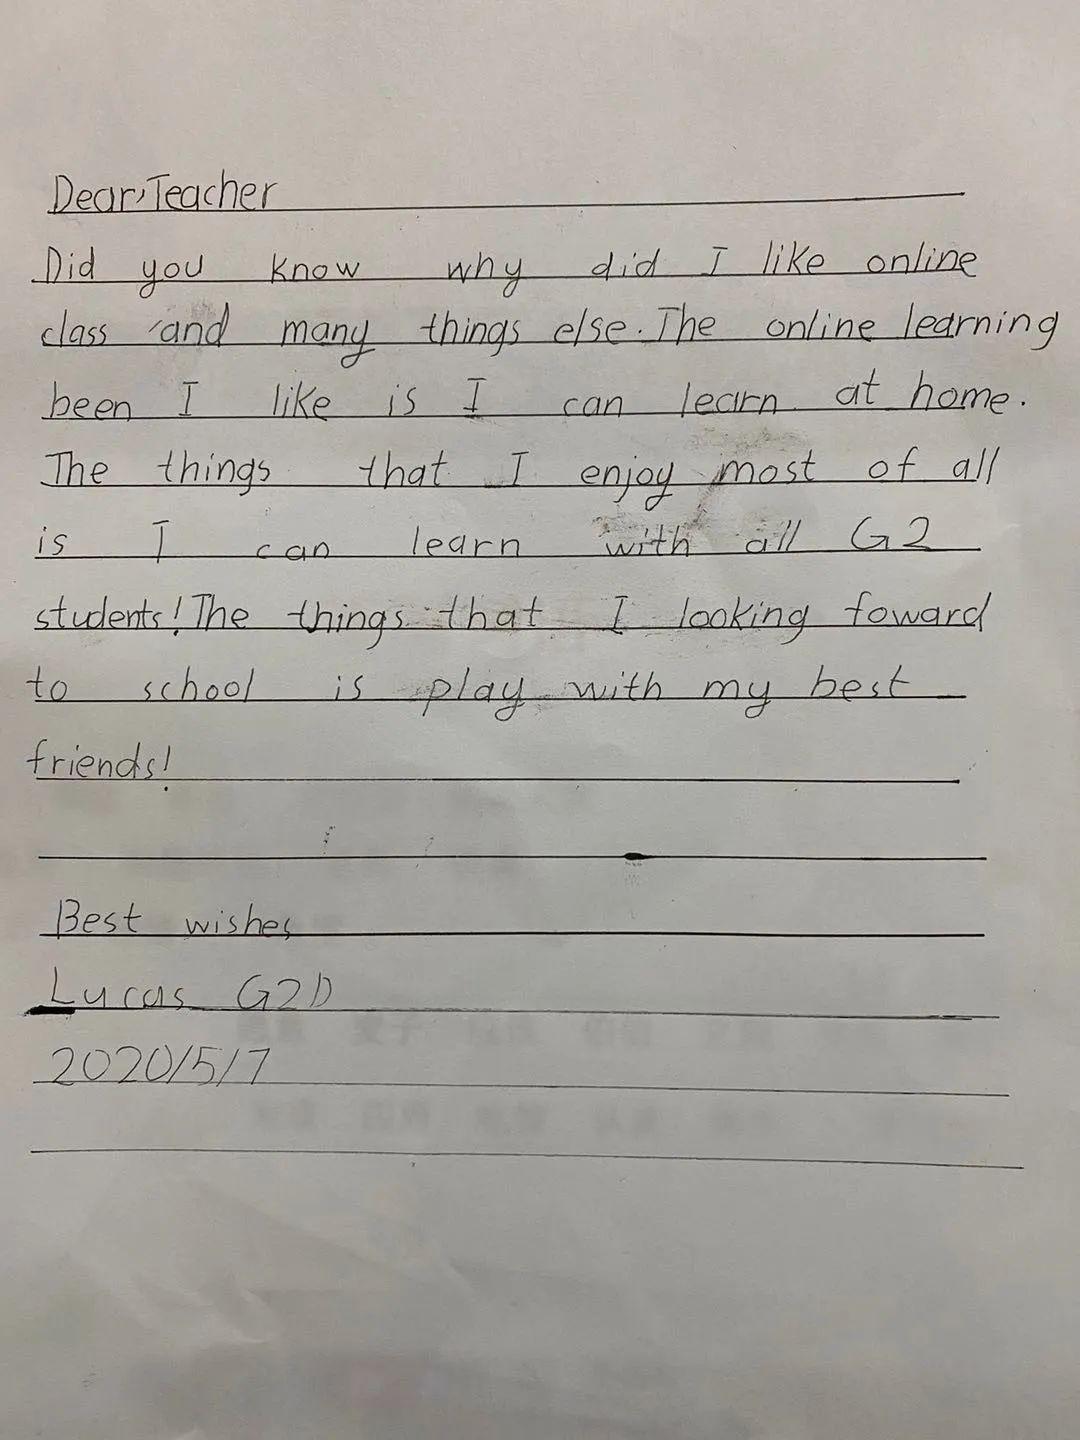 Dear,Teacher
Did you know why did I like online
class and many things else. The online learning
been I like is I can learn at home.
The things that I enjoy most of all
is I can learn with all G2
students! The things that I looking foward
to school is play with my best
friends!
Best wishes
Lucas G2D
2020/5/7